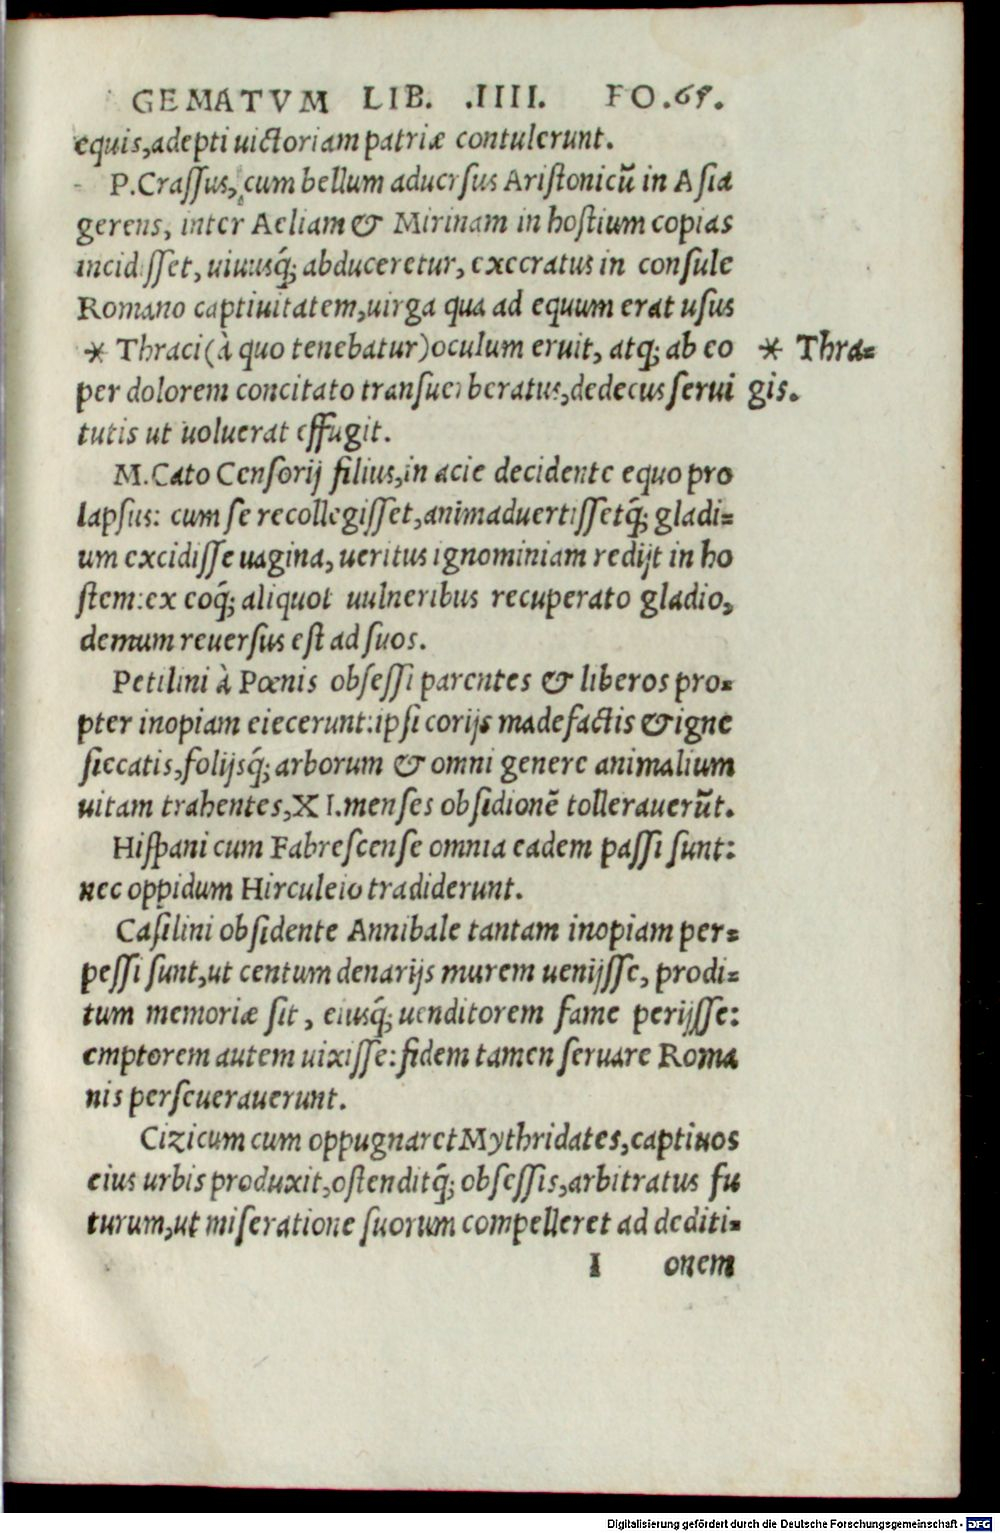 GEMATVM LIB. .IIII. FO.65.
equis,adepti uictoriam patriæ contulerunt.
P.Crassus, cum bellum aduersus Aristonicũ in Asia
gerens, inter Aeliam & Mirinam in hostium copias
incidisset, uiuusq́; abduceretur, execratus in consule
Romano captiuitatem,uirga qua ad equum erat usus
* Thraci(à quo tenebatur)oculum eruit, atq; ab eo
* Thra=
per dolorem concitato transuerberatus,dedecus serui
gis.
tutis ut uoluerat effugit.
M.Cato Censorij filius,in acie decidente equo pro
lapsus: cum se recollegisset,animaduertissetq́; gladi=
um excidisse uagina, ueritus ignominiam redijt in ho
stem:ex eoq́; aliquot uulneribus recuperato gladio,
demum reuersus est ad suos.
Petilini à Pœnis obsessi parentes & liberos pro=
pter inopiam eiecerunt:ipsi corijs madefactis & igne
siccatis,folijsq́; arborum & omni genere animalium
uitam trahentes,XI.menses obsidionẽ tollerauerũt.
Hispani cum Fabrescense omnia eadem passi sunt:
nec oppidum Hirculeio tradiderunt.
Casilini obsidente Annibale tantam inopiam per=
pessi sunt,ut centum denarijs murem uenijsse, prodi=
tum memoriæ sit, eiusq́; uenditorem fame perijsse:
emptorem autem uixisse:fidem tamen seruare Roma
nis perseuerauerunt.
Cizicum cum oppugnaret Mythridates,captiuos
eius urbis produxit,ostenditq́; obsessis,arbitratus fu
turum,ut miseratione suorum compelleret ad dediti=
I onem
Digitalisierung gefördert durch die Deutsche Forschungsgemeinschaft - DFG